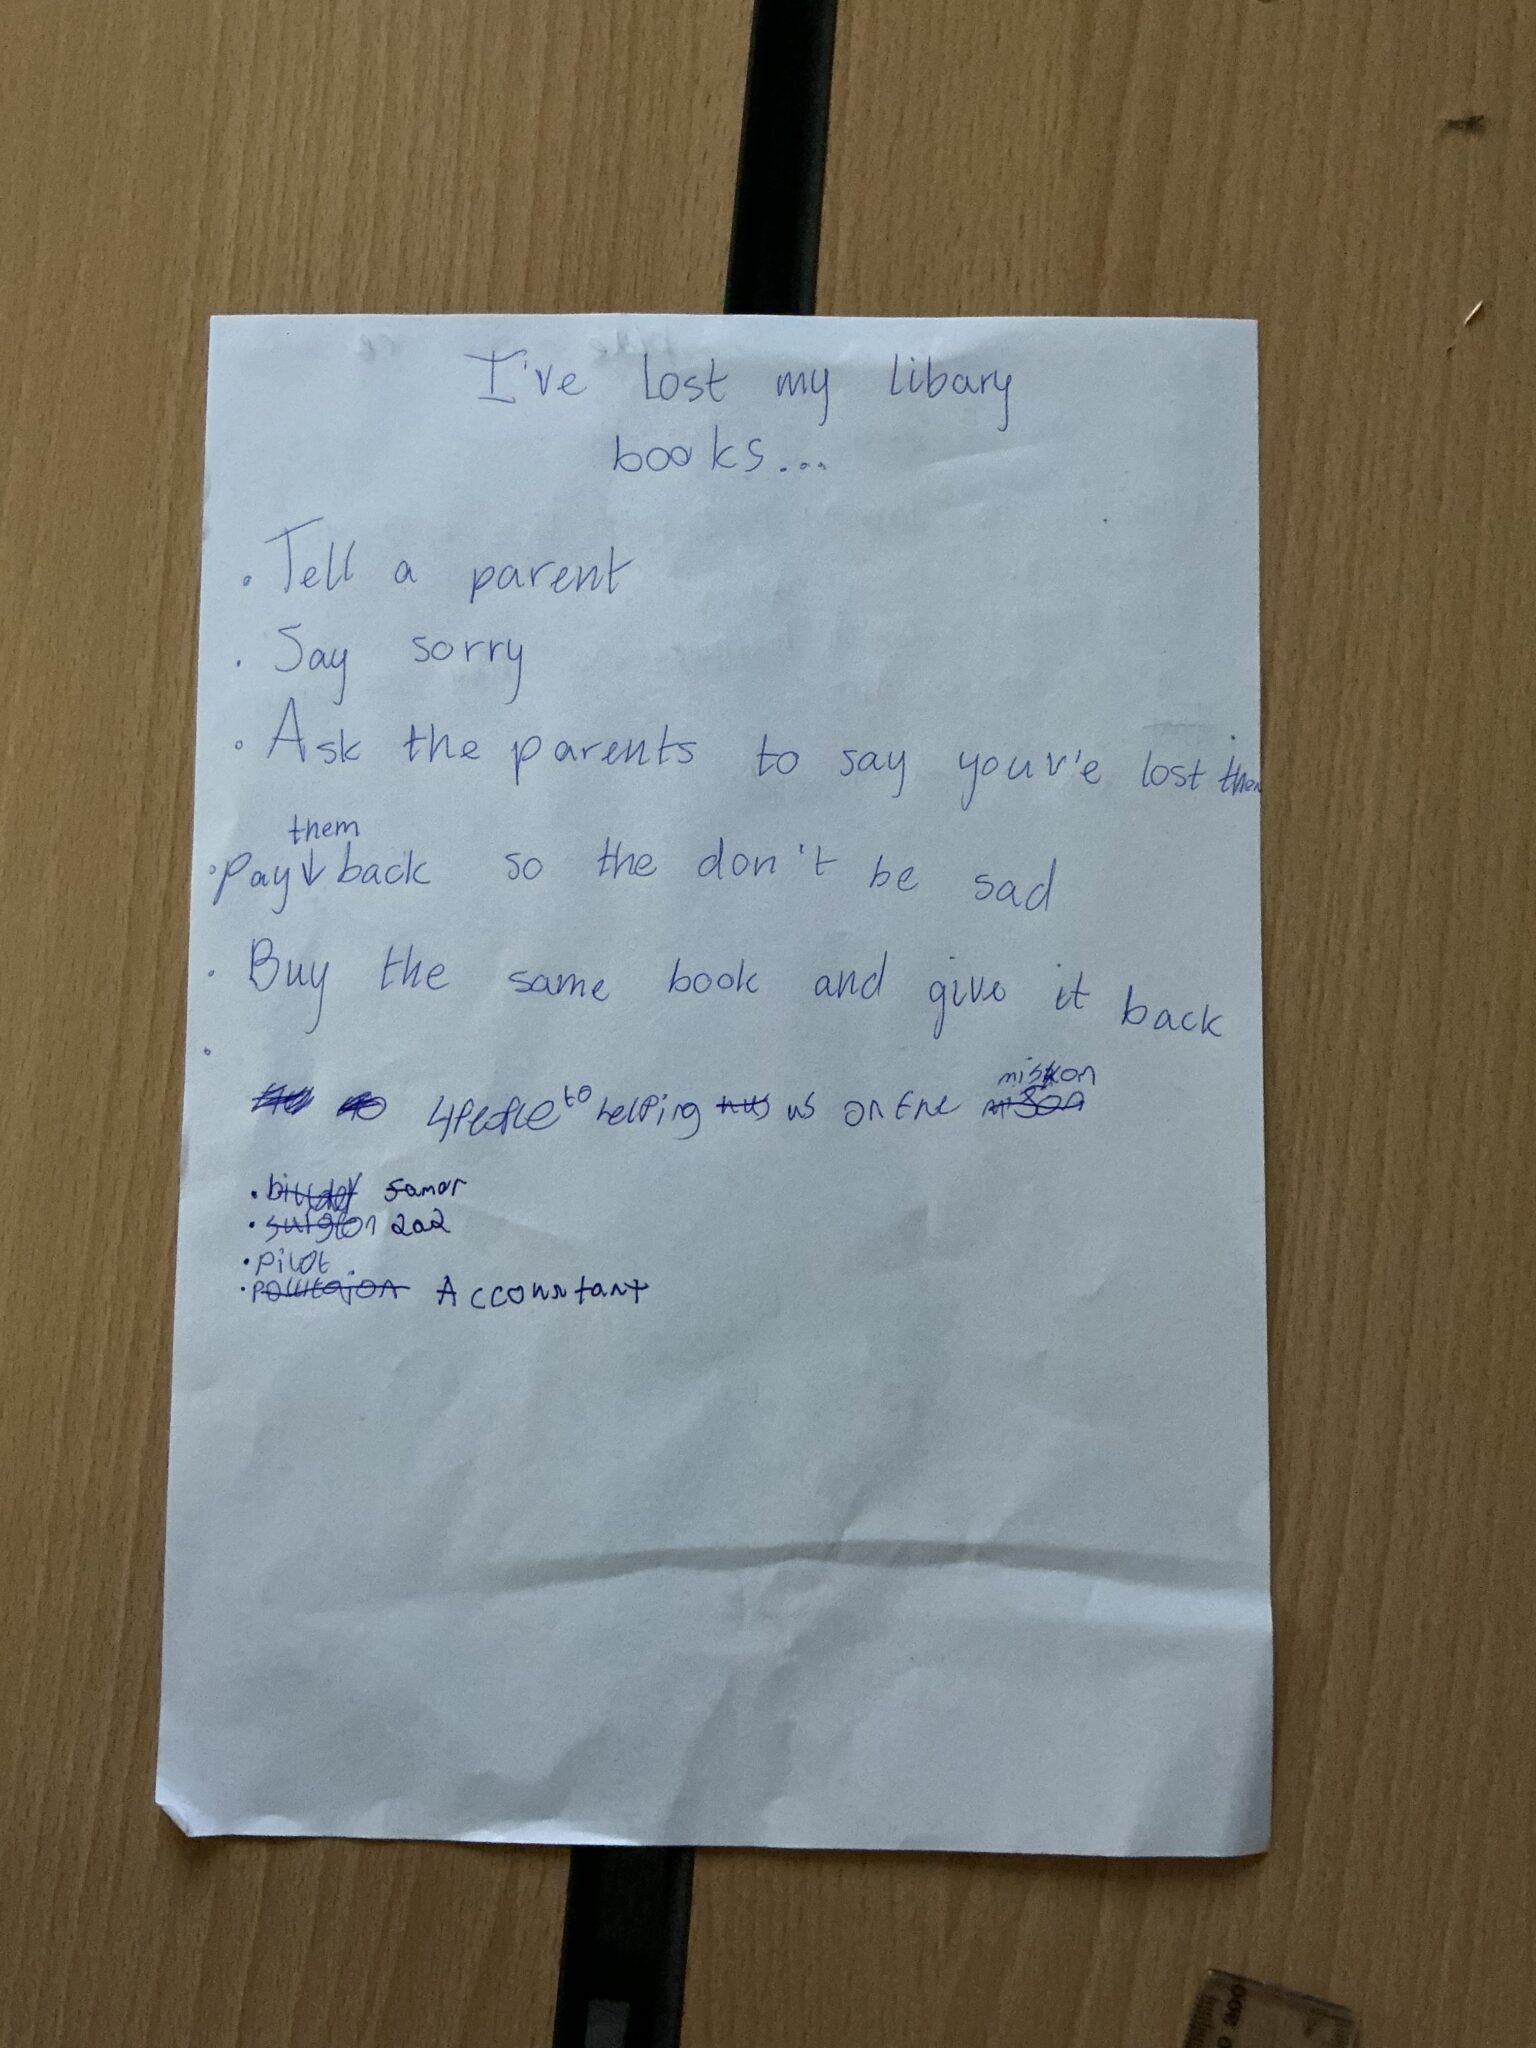 I've lost my libary
books...
. Tell a parent
. Say sorry
. Ask the parents to say youv'e lost them
them
. Pay ↓ back so the don't be sad
. Buy the same book and give it back
.
mission
4 People to helping us on the
.
. pilot.
. Accountant